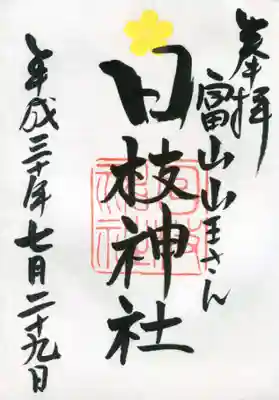 奉拝
富山山王さん
日枝神社
平成三十年七月二十九日